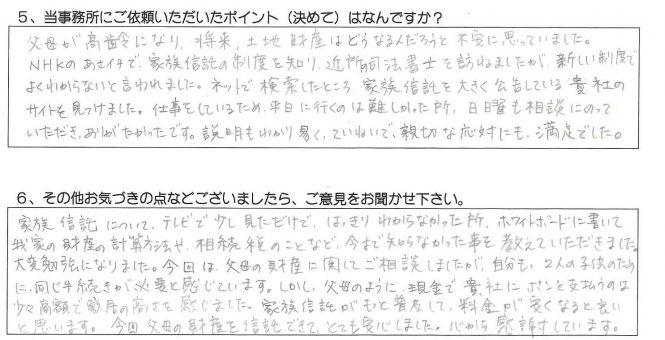 5、当事務所にご依頼いただいたポイント（決めて）はなんですか？
父母が高齢になり、将来、土地財産はどうなるんだろうと不安に思っていました。
NHKのあさイチで、家族信託の制度を知り、近所司法書士を訪ねましたが、新しい制度で
よくわからないと言われました。ネットで検索したところ、家族信託を大きく公告している貴社の
サイトを見つけました。仕事をしているため、平日に行くのは難しかった所、日曜も相談にのって
いただき、ありがたかったです。説明もわかり易く、ていねいで、親切な応対にも、満足でした。
6、その他お気づきの点などございましたら、ご意見をお聞かせ下さい。
家族信託について、テレビで少し見ただけで、はっきりわからなかった所、ホワイトボードに書いて
我家の財産の計算方法や、相続税のことなど、今まで知らなかった事を教えていただきました。
大変勉強になりました。今回は、父母の財産に関してご相談しましたが、自分も、2人の子供のため
に、同じ手続きが必要と感じています。しかし、父母のように、現金で貴社にポンと支払うのは
少々高額で敷居の高さを感じました。家族信託がもっと普及して、料金が安くなると良い
と思います。今回父母の財産を信託できて、とても安心しました。心から感謝しています。